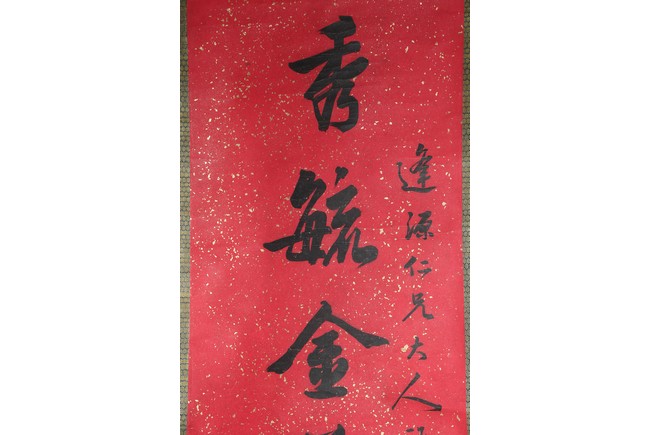 逢源仁兄大人
秀毓金